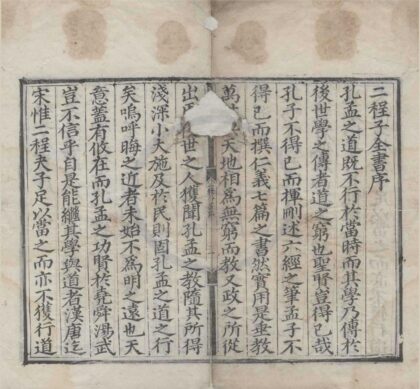 二程子全書序
孔孟之道既不行於當時而其學乃傳於
後世學之傳者道之窮也聖賢豈得已哉
孔子不得已而揮刪述六經之筆孟子不
得已而撰仁義七篇之書然實用是垂教
萬世 天地相為無窮而教又政之所從
出 後世之人獲聞孔孟之教隨其所得
淺深小大施及於民則固孔孟之道之行
矣嗚呼晦之近者未始不為明之遠也天
意蓋有攸在而孔孟之功賢於堯舜湯武
豈不信乎自是能繼其學與道者漢唐迄
宋惟二程夫子足以當之而亦不獲行道